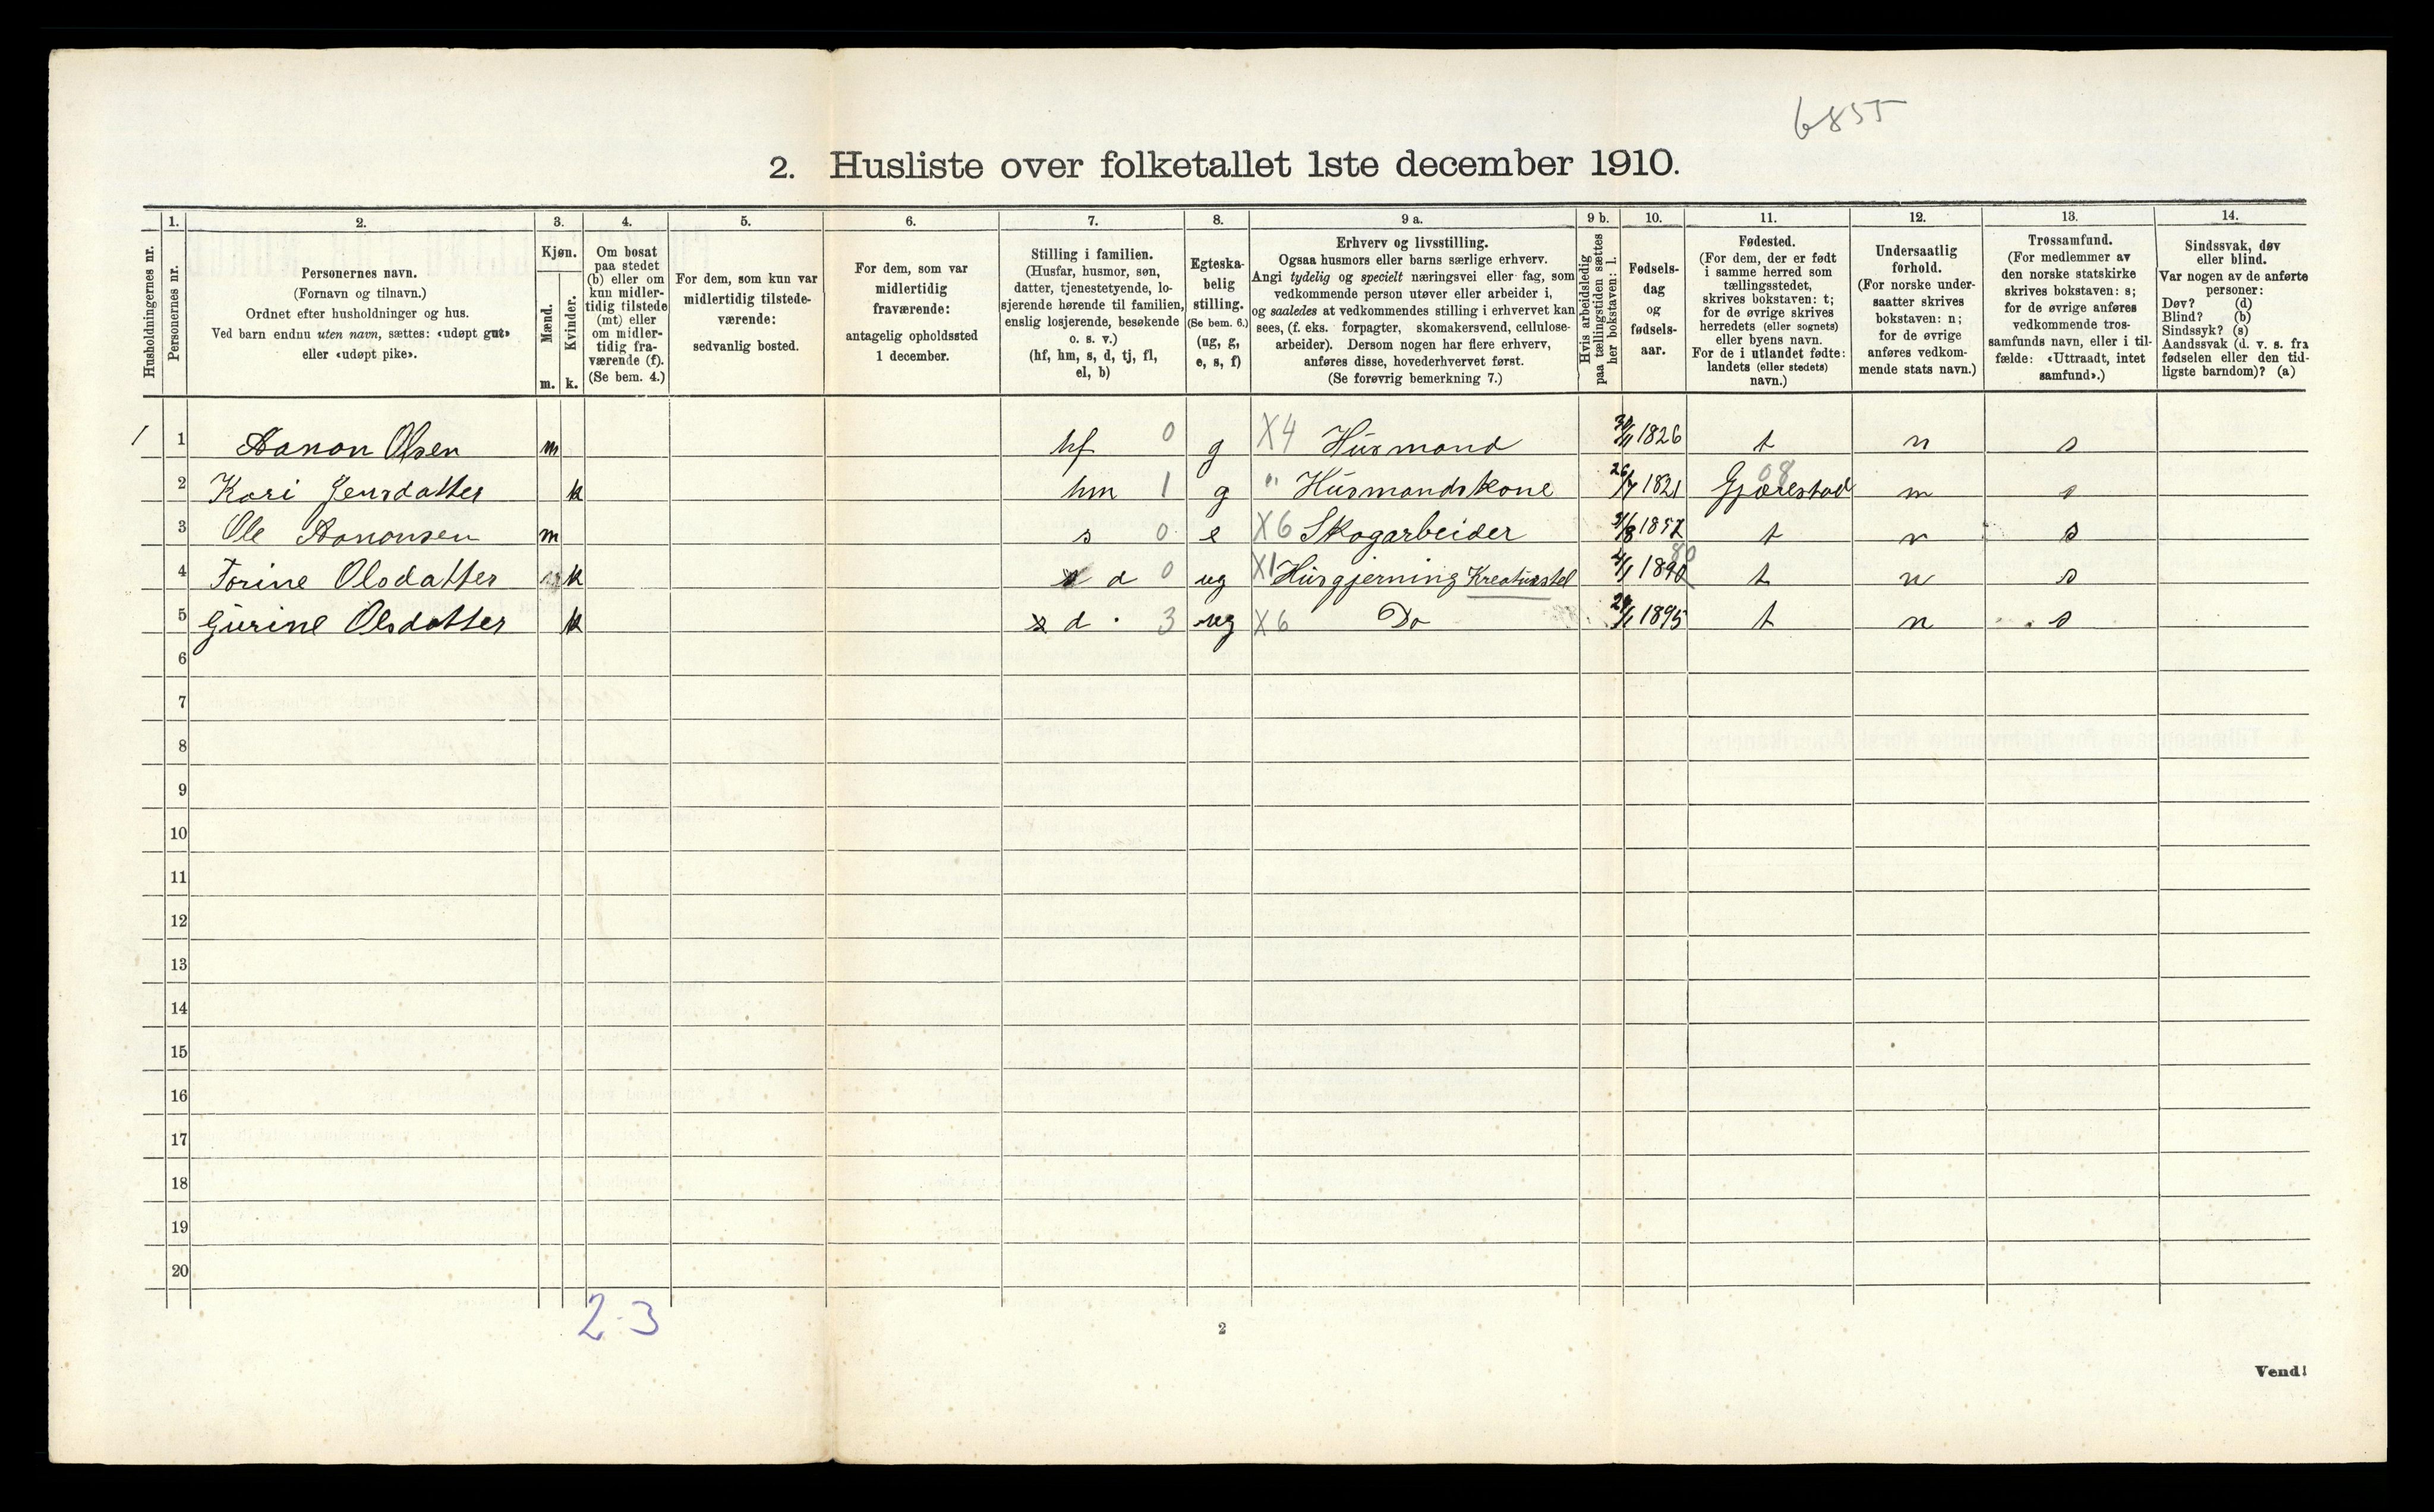 6855
2. Husliste over folketallet 1ste december 1910.
Husholdningernes nr.
1.
Personernes nr.
2.
Personernes navn.
(Fornavn og tilnavn.)
Ordnet efter husholdninger og hus.
Ved barn endnu uten navn, sættes: «udøpt gut»
eller «udøpt pike».
3.
Kjøn.
Mænd.
Kvinder.
m. k.
4.
Om bosat
paa stedet
(b) eller om
kun midler-
tidig tilstede
(mt) eller
om midler-
tidig fra-
værende (f).
(Se bem. 4.)
5.
For dem, som kun var
midlertidig tilstede-
værende:
sedvanlig bosted.
6.
For dem, som var
midlertidig
fraværende:
antagelig opholdssted
1 december.
7.
Stilling i familien.
(Husfar, husmor, søn,
datter, tjenestetyende, lo-
sjerende hørende til familien,
enslig losjerende, besøkende
o. s. v.)
(hf, hm, s, d, tj, fl,
el, b)
8.
Egteska-
belig
stilling.
(Se bem. 6.)
(ug, g,
e, s, f)
9 a.
Erhverv og livsstilling.
Ogsaa husmors eller barns særlige erhverv.
Angi tydelig og specielt næringsvei eller fag, som
vedkommende person utøver eller arbeider i,
og saaledes at vedkommendes stilling i erhvervet kan
sees, (f. eks. forpagter, skomakersvend, cellulose-
arbeider). Dersom nogen har flere erhverv,
anføres disse, hovederhvervet først.
(Se forøvrig bemerkning 7.)
9 b.
Hvis arbeidsledig
paa tællingstiden sættes
her bokstaven: l.
10.
Fødsels-
dag
og
fødsels-
aar.
11.
Fødested.
(For dem, der er født
i samme herred som
tællingsstedet,
skrives bokstaven: t;
for de øvrige skrives
herredets (eller sognets)
eller byens navn.
For de i utlandet fødte:
landets (eller stedets)
navn.)
12.
Undersaatlig
forhold.
(For norske under-
saatter skrives
bokstaven: n;
for de øvrige
anføres vedkom-
mende stats navn.)
13.
Trossamfund.
(For medlemmer av
den norske statskirke
skrives bokstaven: s;
for de øvrige anføres
vedkommende tros-
samfunds navn, eller i til-
fælde: «Uttraadt, intet
samfund».)
14.
Sindssvak, døv
eller blind.
Var nogen av de anførte
personer:
Døv? (d)
Blind? (b)
Sindssyk? (s)
Aandssvak (d. v. s. fra
fødselen eller den tid-
ligste barndom)? (a)
1 1 Aanon Olsen m hf 0 g X4 Husmand 1826 t n s
2 Kari Jensdatter k hm 1 g " Husmandskone 26/7 1821 Gjærestad 08 n s
3 Ole Aanonsen m s 0 e X6 Skogarbeider 1857 t n s
4 Torine Olsdatter k d 0 ug X1 Husgjerning Kreaturstel 4/1 1890 80 t n s
5 Gurine Olsdatter k d 3 ug X6 Do 1895 t n s
6
7
8
9
10
11
12
13
14
15
16
17
18
19
20
2-3
2
Vend!